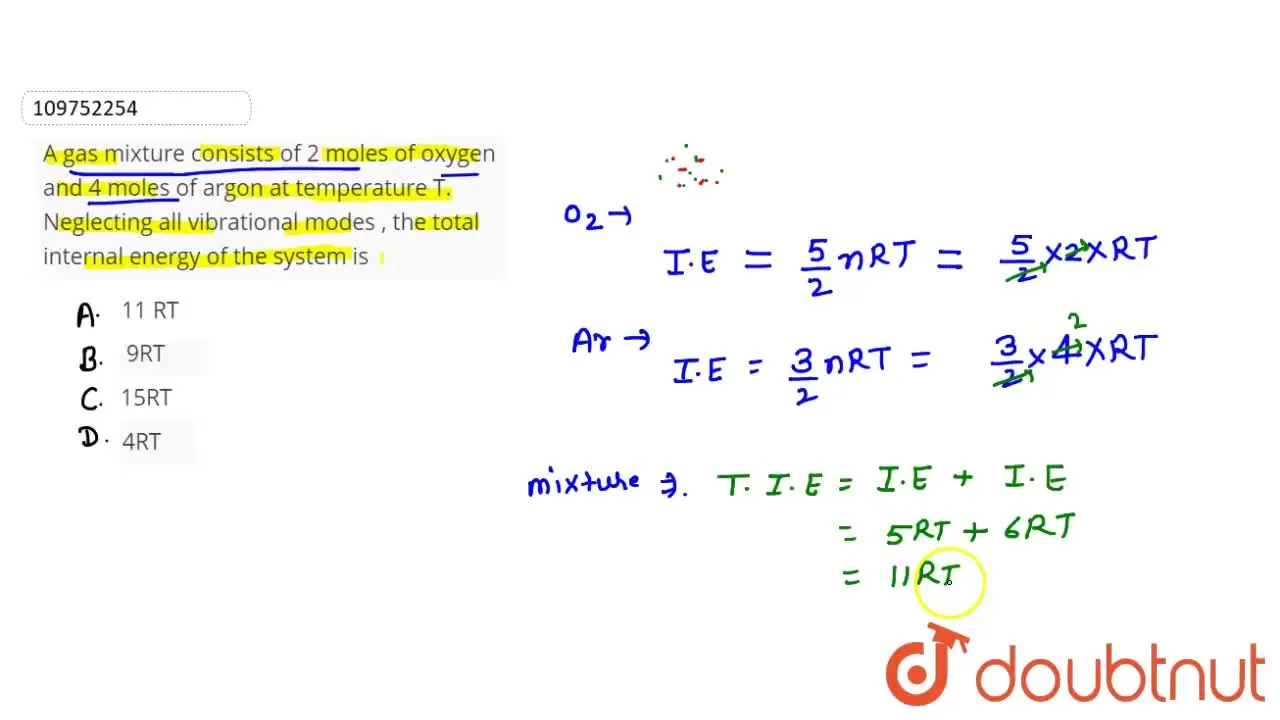 109752254
A gas mixture consists of 2 moles of oxygen
and 4 moles of argon at temperature T.
Neglecting all vibrational modes , the total
internal energy of the system is
A. 11 RT
B. 9RT
C. 15RT
D. 4RT
O₂ →
I.E = 5/2 nRT = 5/2 × 2 × RT
Ar →
2
I.E = 3/2 nRT = 3/2 × 4 × RT
mixture ⇒. T. I. E = I.E + I.E
= 5RT + 6RT
= 11RT
doubtnut